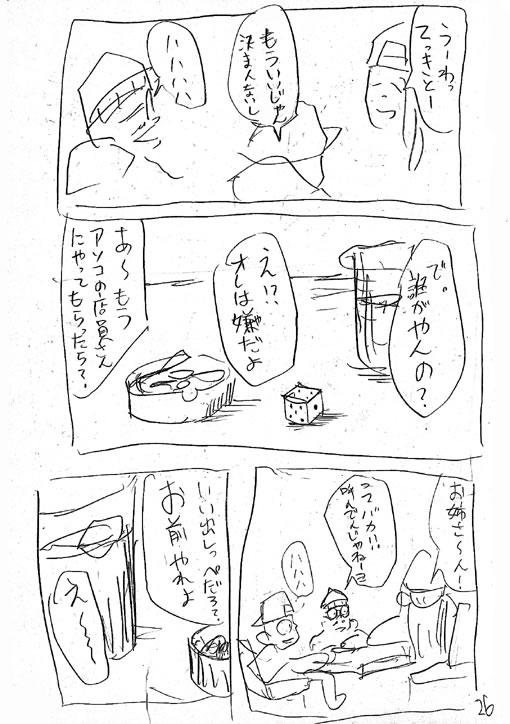 うーわっ
てっきとー
もういいじゃ
決まんないし
ハハハハ
で。
誰がやんの？
え!?
オレは嫌だよ
あ〜もう
アソコの店員さん
にやってもらったら？
お姉さ〜ん！
バカ!!
呼んでんじゃねー
ハハハ
いい出しっぺだろ？
お前やれよ
え〜〜
26